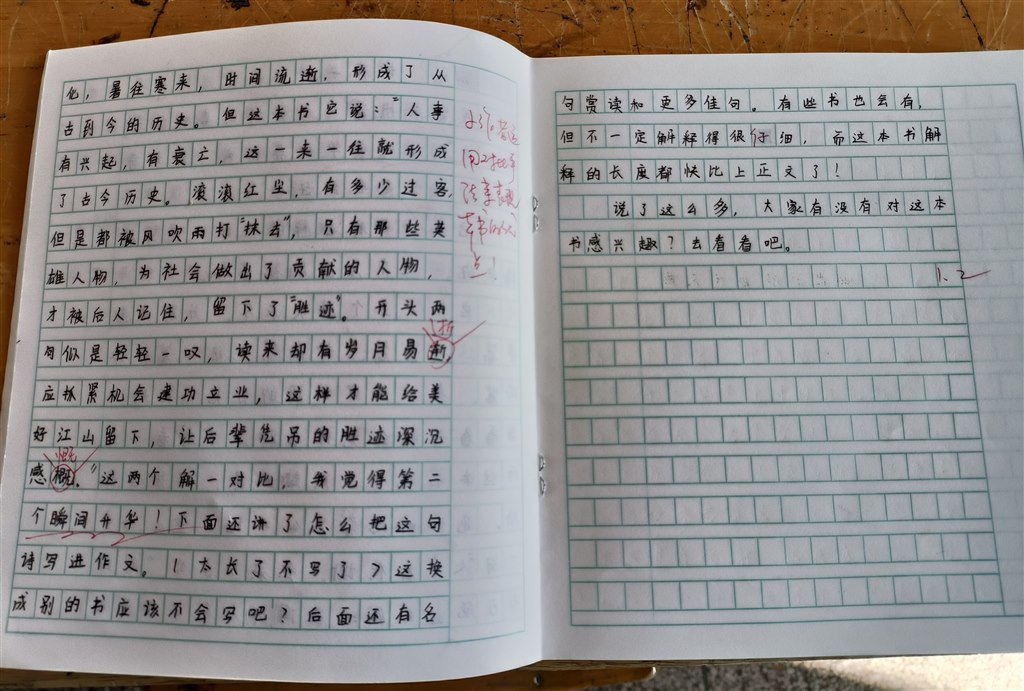 化，暑往寒来，时间流逝，形成了从
古到今的历史。但这本书它说："人事
有兴起，有衰亡，这一来一往就形成
了古今历史。滚滚红尘，有多少过客，
但是都被风吹雨打"抹去"，只有那些英
雄人物，为社会做出了贡献的人物，
才被后人记住，留下了"胜迹"。开头两
句似是轻轻一叹，读来却有岁月易逝，
应抓紧机会建功立业，这样才能给美
好江山留下，让后辈凭吊的胜迹深沉
慨
感概。"这两个解一对比，我觉得第二
个瞬间升华！下面还讲了怎么把这句
诗写进作文。(太长了不写了)这换
成别的书应该不会写吧？后面还有名
小作者运
用对比手
点！
句赏读和更多佳句。有些书也会有，
但不一定解释得很仔细，而这本书解
释的长度都快比上正文了！
说了这么多，大家有没有对这本
书感兴趣？去看看吧。
1.2